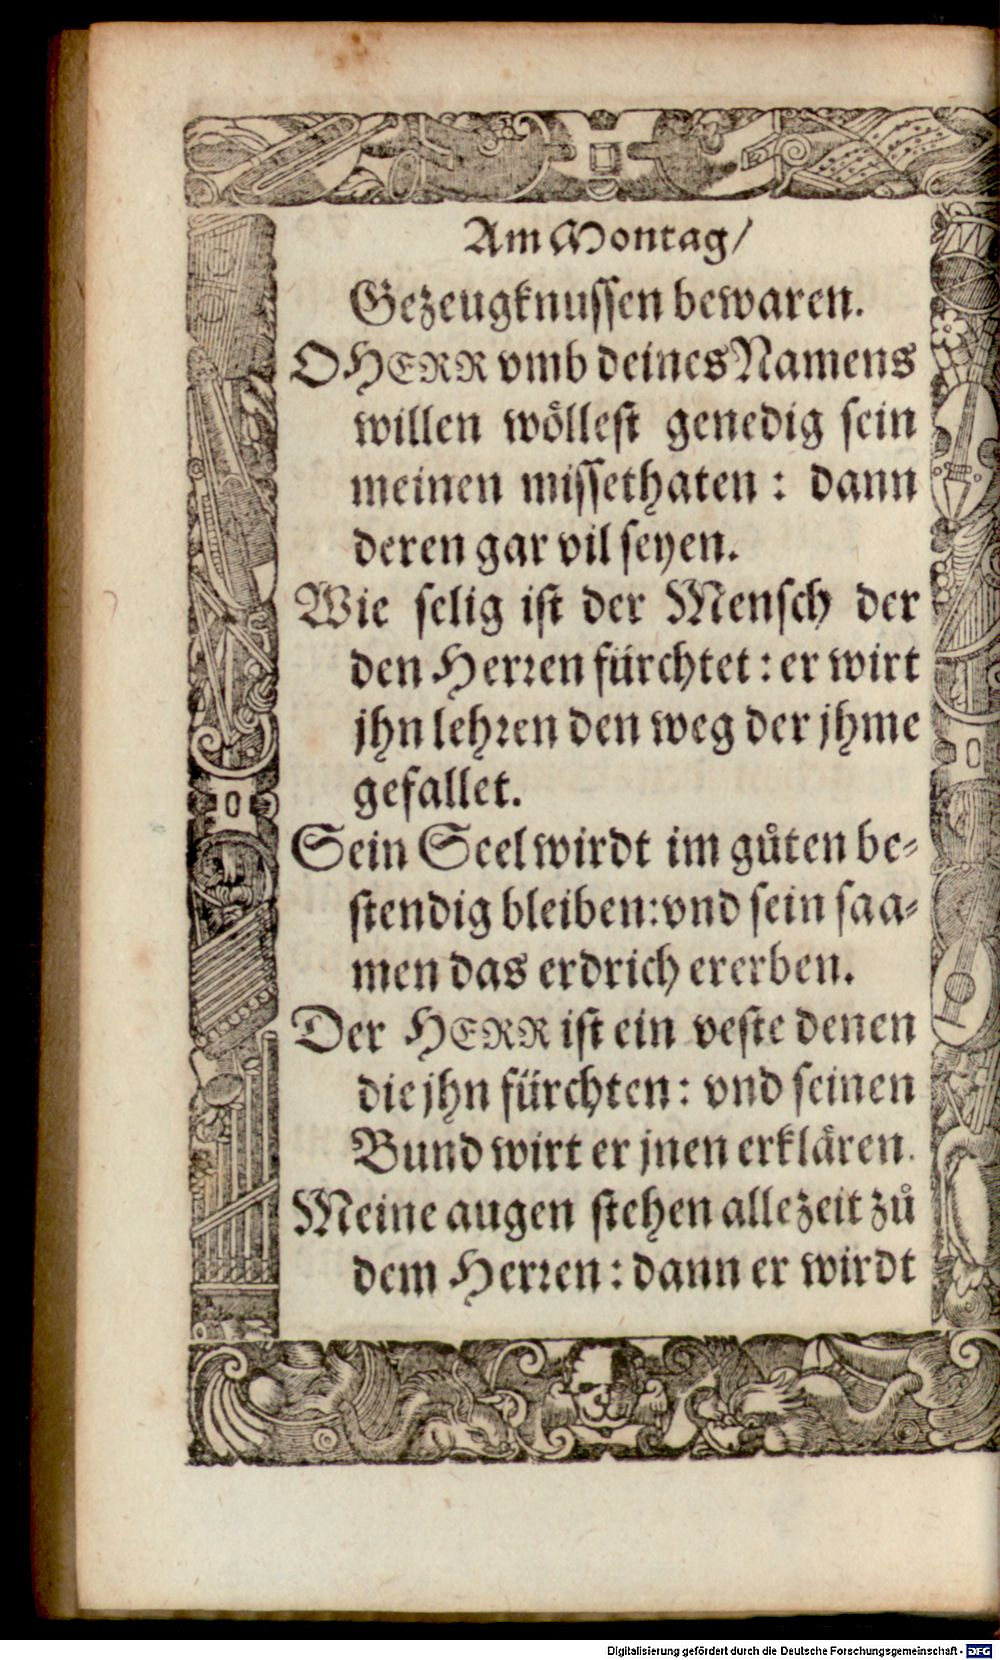 Am Montag/
Gezeugknussen bewaren.
O HERR vmb deines Namens
willen wöllest genedig sein
meinen missethaten : dann
deren gar vil seyen.
Wie selig ist der Mensch der
den Herren fürchtet : er wirt
jhn lehren den weg der jhme
gefallet.
Sein Seel wirdt im gůten be-
stendig bleiben: vnd sein saa-
men das erdrich ererben.
Der HERR ist ein veste denen
die jhn fürchten : vnd seinen
Bund wirt er jnen erklären.
Meine augen stehen allezeit zů
dem Herren : dann er wirdt
Digitalisierung gefördert durch die Deutsche Forschungsgemeinschaft - DFG